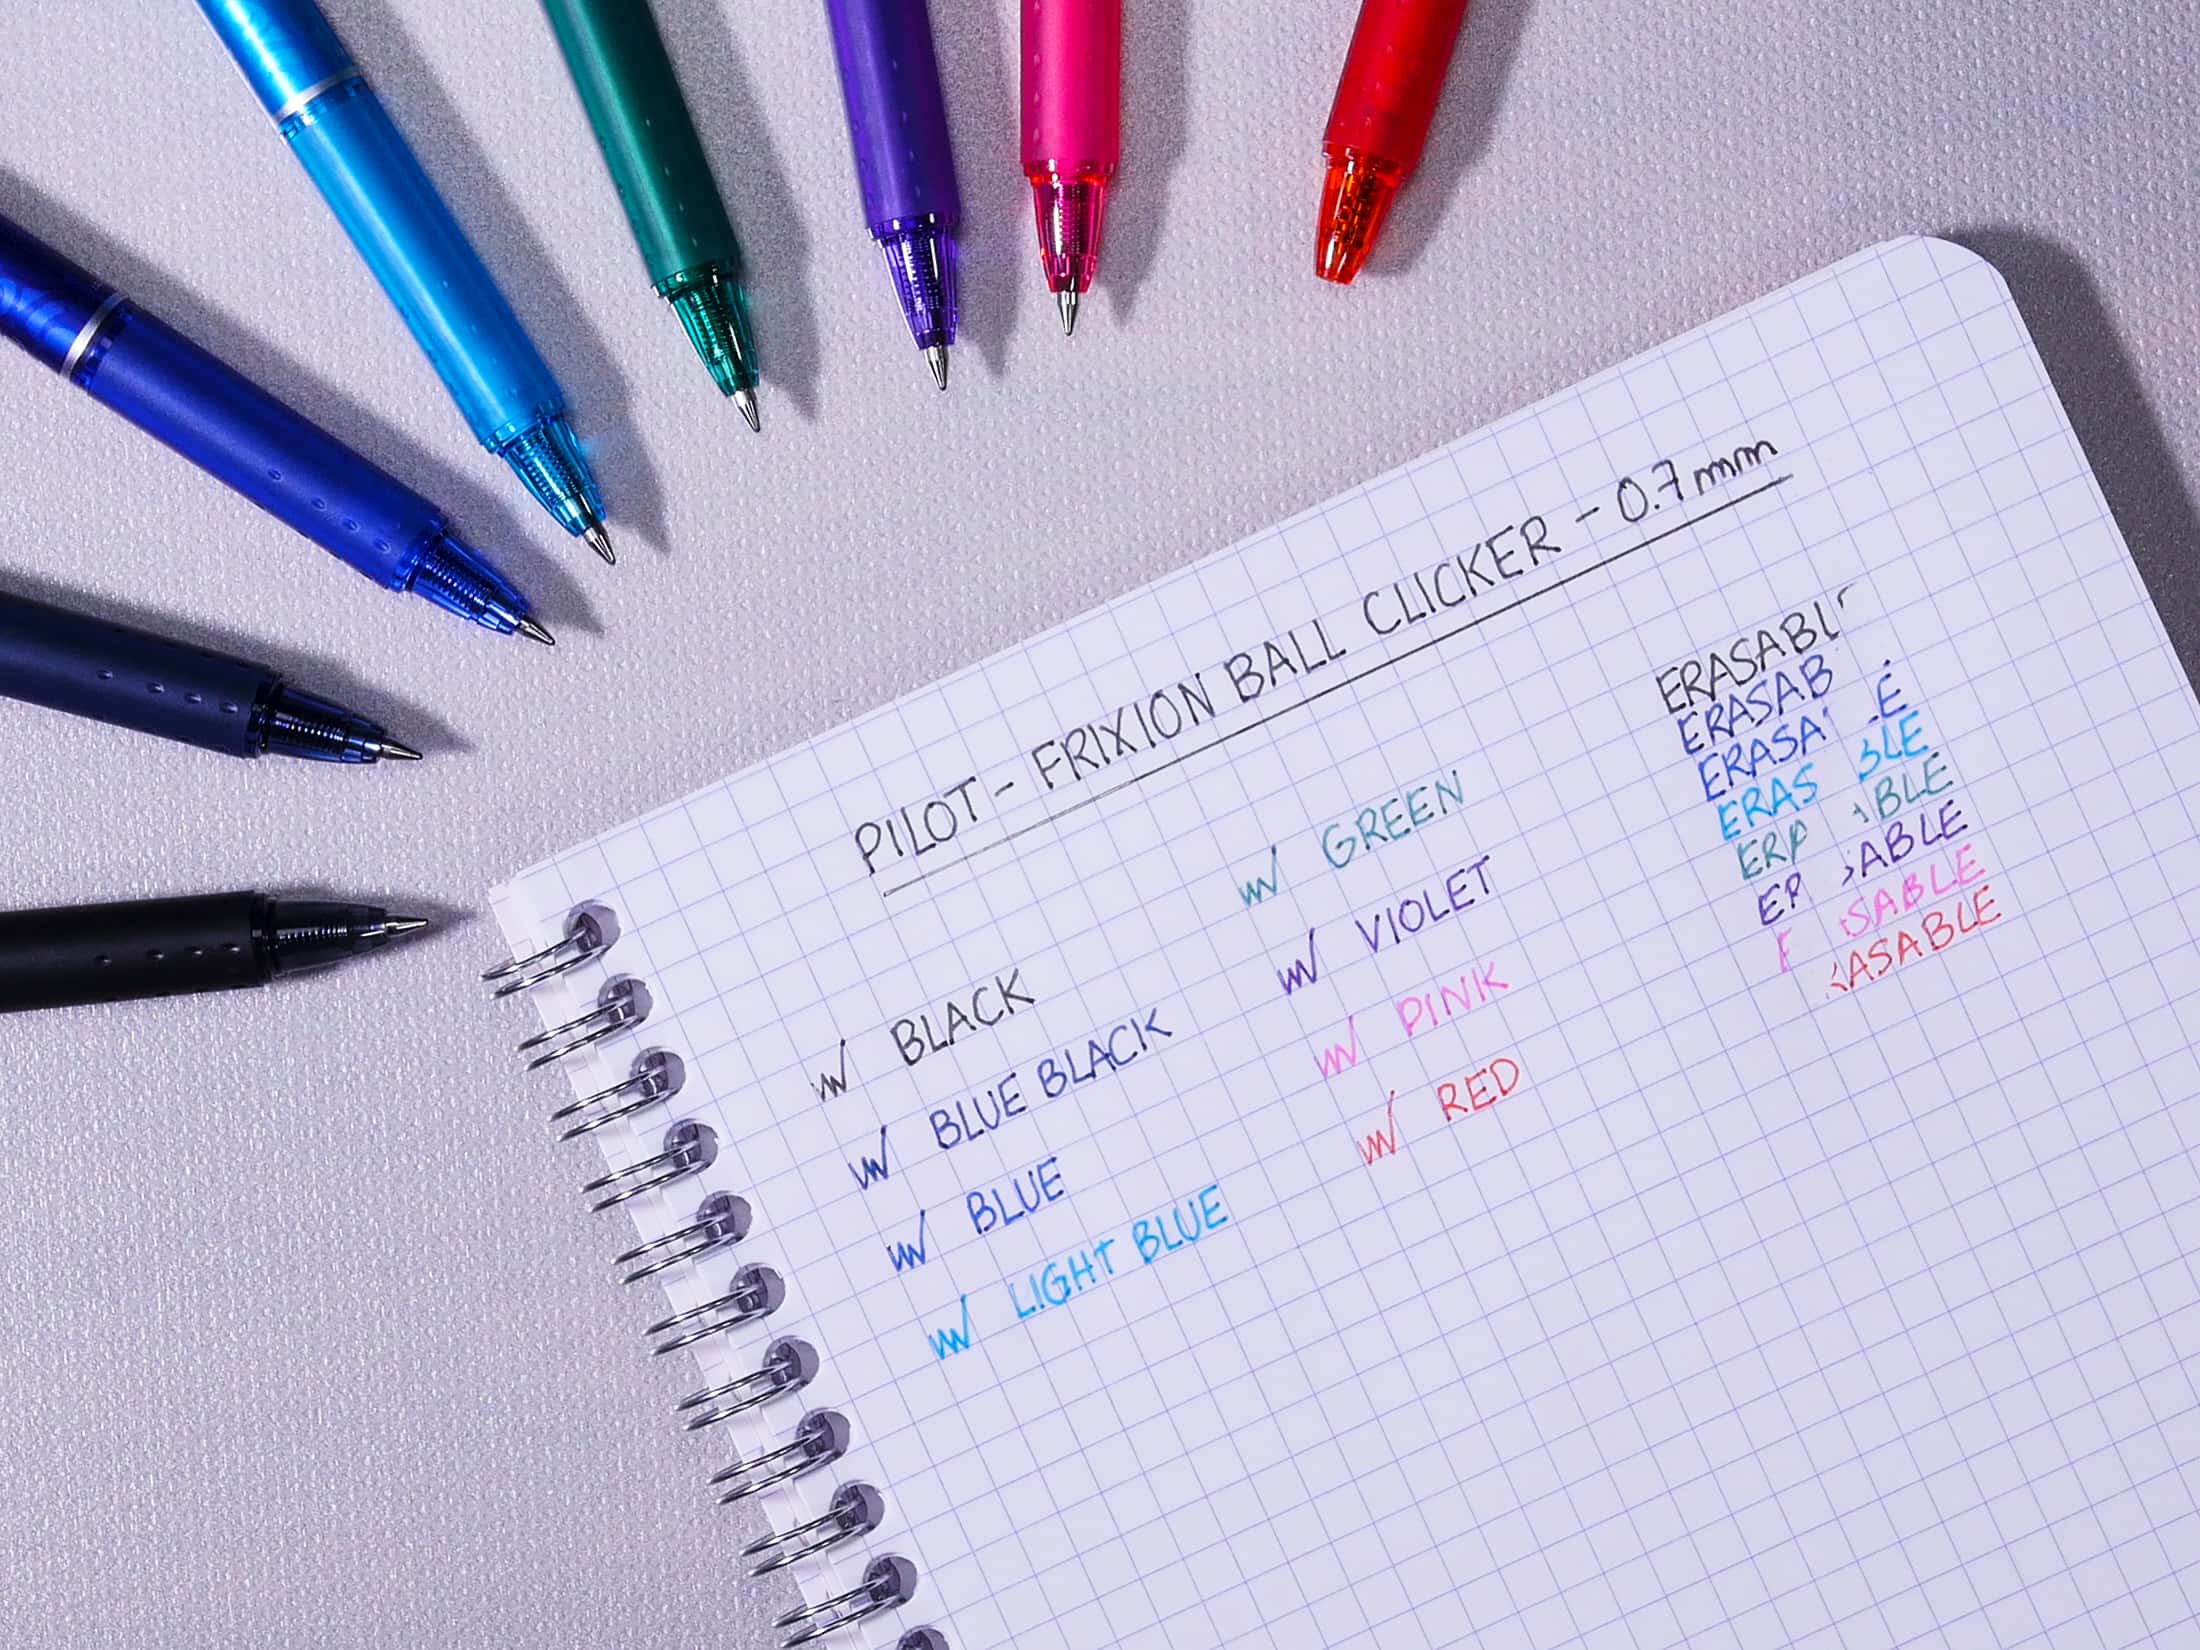 PILOT - FRIXION BALL CLICKER - 0.7mm
BLACK
BLUE BLACK
BLUE
LIGHT BLUE
GREEN
VIOLET
PINK
RED
ERASABL
ERASAB
ERASA E
ERAS BLE
ERA ABLE
ER SABLE
E SABLE
ASABLE